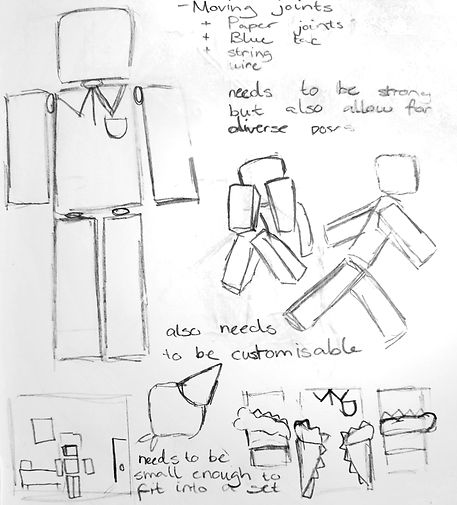 - Moving joints
+ Paper joints
+ Blue tac
+ string
wire
needs to be strong
but also allow for
diverse poses
also needs
to be customisable
needs to be
small enough to
fit into a set